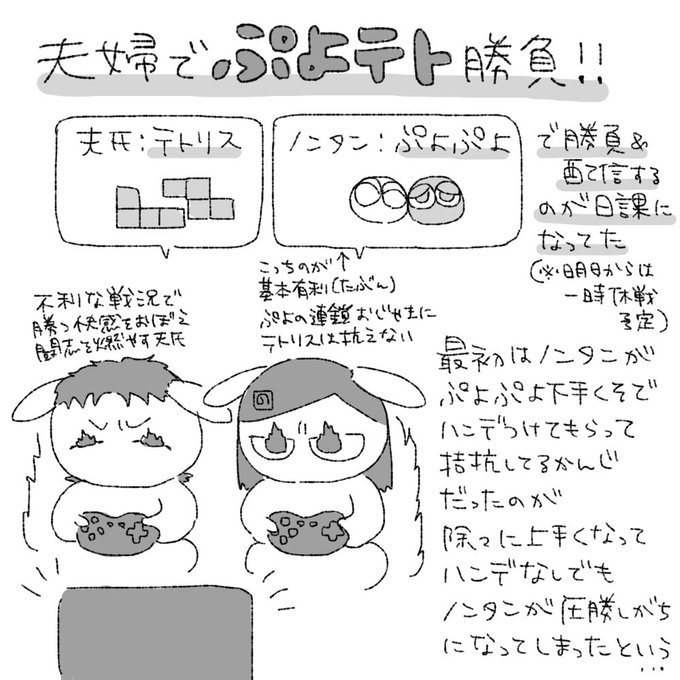 夫婦でぷよテト勝負!!
夫氏:テトリス
ノンタン:ぷよぷよ
で勝負&
配信する
のが日課に
なってた
(※明日からは
一時休戦
予定)
こっちのが↑
基本有利(たぶん)
ぷよの連鎖おじゃまに
テトリスは抗えない
不利な戦況で
勝つ快感をおぼえ
闘志を燃やす夫氏
の
最初はノンタンが
ぷよぷよ下手くそで
ハンデつけてもらって
拮抗してるかんじ
だったのが
除々に上手くなって
ハンデなしでも
ノンタンが圧勝しがち
になってしまったという
…